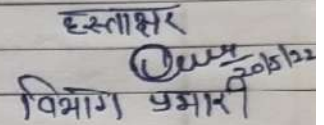 हस्ताक्षर
20/5/22
विभाग प्रभारी